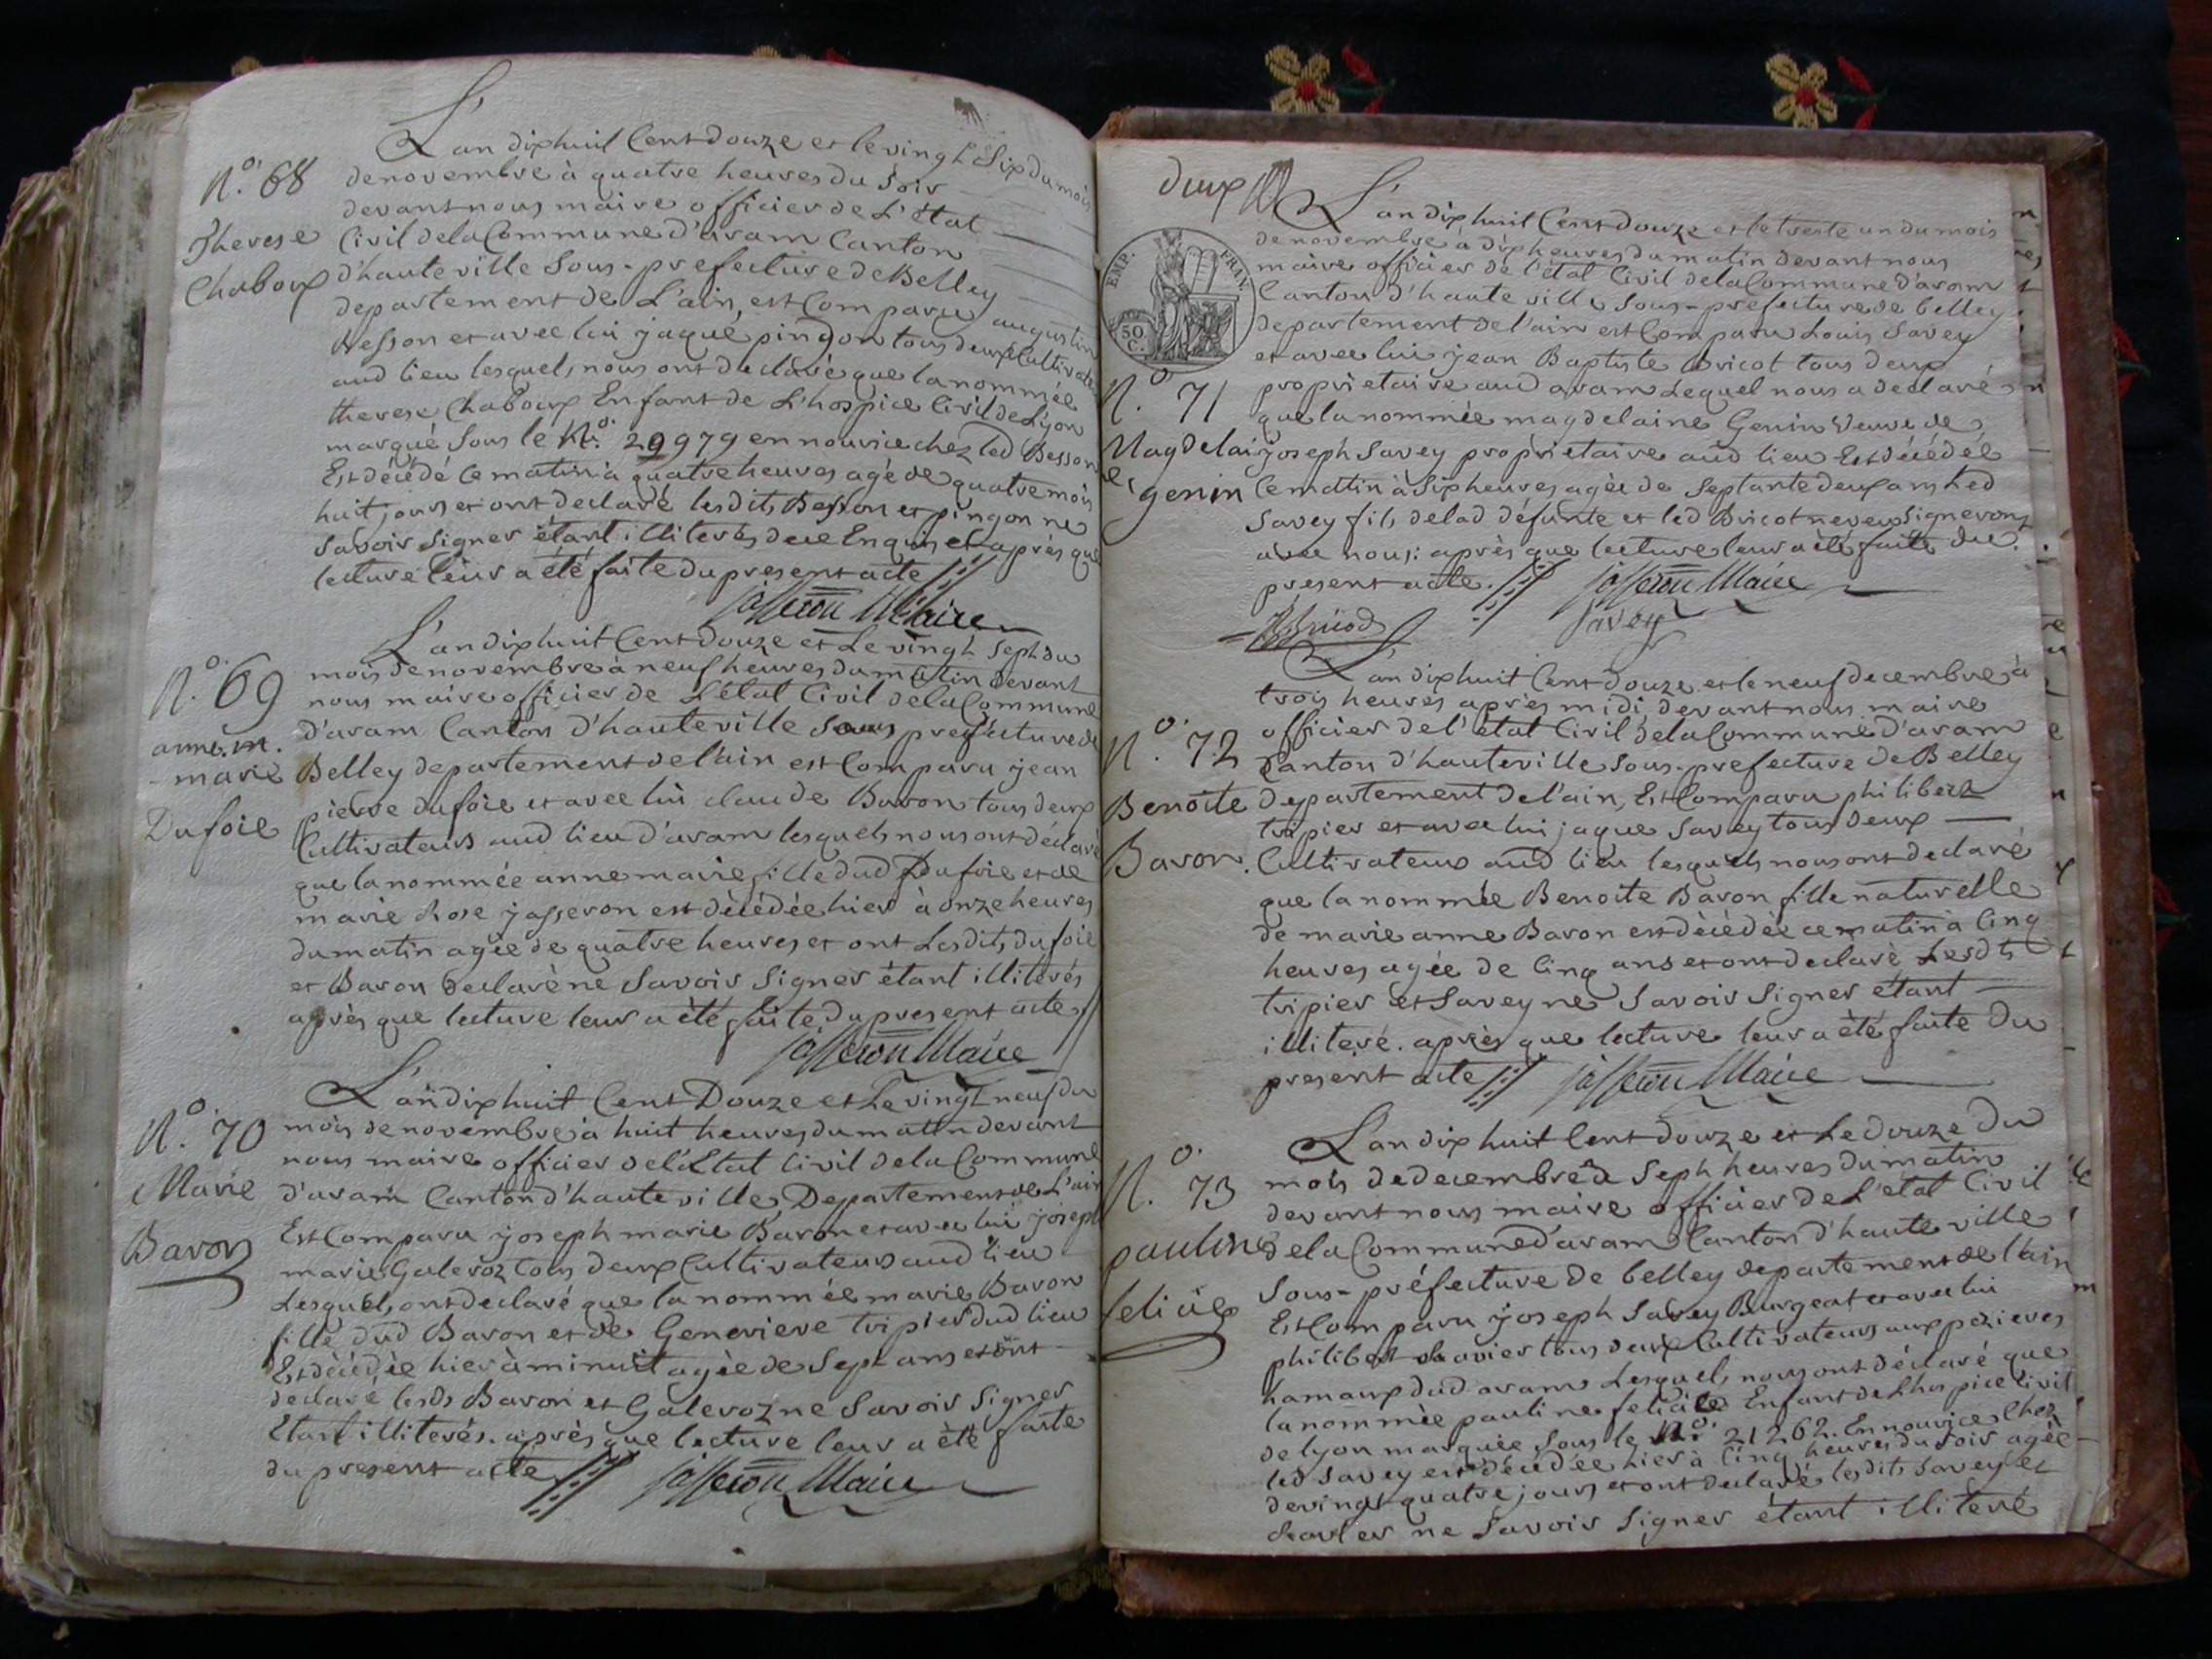 L'an dixhuit Cent Douze et le vingt Six du mois
de novembre à quatre heures du Soir
devant nous maire officier de L'état
Civil dela Commune d'aram Canton
d'hauteville Sous-prefecture de Belley
departement de L'ain, est Comparu augustin
Besson et avec lui jaque pingon tous deux Cultivateurs
aud lieu lesquels nous ont declaré que la nommée
therese Chaboux Enfant de L'hospice Civil de Lyon
marqué Sous le N.o 20979 en nourice chez led Besson
Est décédé ce matin à quatre heures agé de quatre mois
huit jours et ont declaré lesdits Besson et pingon ne
Savoir Signer étant illiterés de ce Enquis et après que
lecture leur a été faite du present acte
jasseron Maire
N.o 68
Therese
Chaboux
L'an dixhuit Cent Douze et Le vingt Sept du
mois de novembre à neuf heures du matin devant
nous maire officier de L'état Civil dela Commune
d'aram Canton d'hauteville Sous prefecture de
Belley departement de l'ain est Comparu jean
pierre dufoie et avec lui claude Baron tous deux
Cultivateurs aud lieu d'aram lesquels nous ont déclaré
que la nommée anne marie fille dud Dufoie et de
marie Rose jasseron est décédée hier à onze heures
du matin agée de quatre heures et ont Lesdits dufoie
et Baron declaré ne Savoir Signer étant illiterés
après que lecture leur a été faite du present acte
jasseron Maire
N.o 69
anne. m.
- marie
Dufoie
L'an dixhuit Cent Douze et Le vingt neuf du
mois de novembre à huit heures du matin devant
nous maire officier de l'Etat Civil dela Commune
d'aram Canton d'hauteville, Departement de L'ain
Est Comparu joseph marie Baron et avec lui joseph
marie Galeroz tous deux Cultivateurs aud lieu
Lesquels ont declaré que la nommée marie Baron
fille dud Baron et de Genevieve tripier dud lieu
Est décédée hier à minuit agée de Sept ans et ont
declaré lesds Baron et Galeroz ne Savoir Signer
Etant illiterés. après que lecture leur a été faite
du present acte
jasseron Maire
N.o 70
Marie
Baron
deux
EMP. FRAN.
50 C.
L'an dix huit Cent douze et le trente un du mois
de novembre à dix heures du matin devant nous
maire officier de l'état Civil dela Commune d'aram
Canton d'hauteville Sous-prefecture de belley
departement de l'ain est Comparu Louis Savey
et avec lui jean Baptiste Bricot tous deux
proprietaire aud aram Lequel nous a declaré
que la nommée magdelaine Genin Veuve de
joseph Savey proprietaire aud lieu Est décédée
ce matin à Six heures agée de Septante deux ans Led
Savey fils delad défunte et led Bricot neveu Signeront
avec nous: après que lecture leur a été faite du
present acte. jasseron Maire
Savey
N.o 71
Magdelain
e genin
L'an dixhuit Cent douze et le neuf decembre à
trois heures après midi devant nous maire
officier de l'état Civil dela Commune d'aram
Canton d'hauteville Sous-prefecture de Belley
departement de l'ain, Est Comparu philibert
tripier et avec lui jaque Savey tous deux
Cultivateurs aud lieu lesquels nous ont declaré
que la nommée Benoite Baron fille naturelle
de marie anne Baron est décédée ce matin à Cinq
heures agée de Cinq ans et ont declaré Lesdts
tripier et Savey ne Savoir Signer étant
illiteré. après que lecture leur a été faite du
present acte jasseron Maire
N.o 72
Benoite
Baron.
L'an dix huit Cent douze et Le douze du
mois de decembre à Sept heures du matin
devant nous maire officier de L'etat Civil
dela Commune d'aram Canton d'hauteville
Sous-préfecture de belley departement de l'ain
Est Comparu joseph Savey Burgeat et avec lui
philibert tous deux Cultivateurs aux pezieres
hamaux dud aram Lesquels nous ont déclaré que
la nommée pauline felicite Enfant de Lhospice Civil
de lyon marquée Sous le N.o 21262. En nourice chez
led Savey est décédée hier à Cinq heures du Soir agée
de vingt quatre jours et ont declaré lesdits Savey et
ne Savoir Signer étant illiteré
N.o 73
pauline